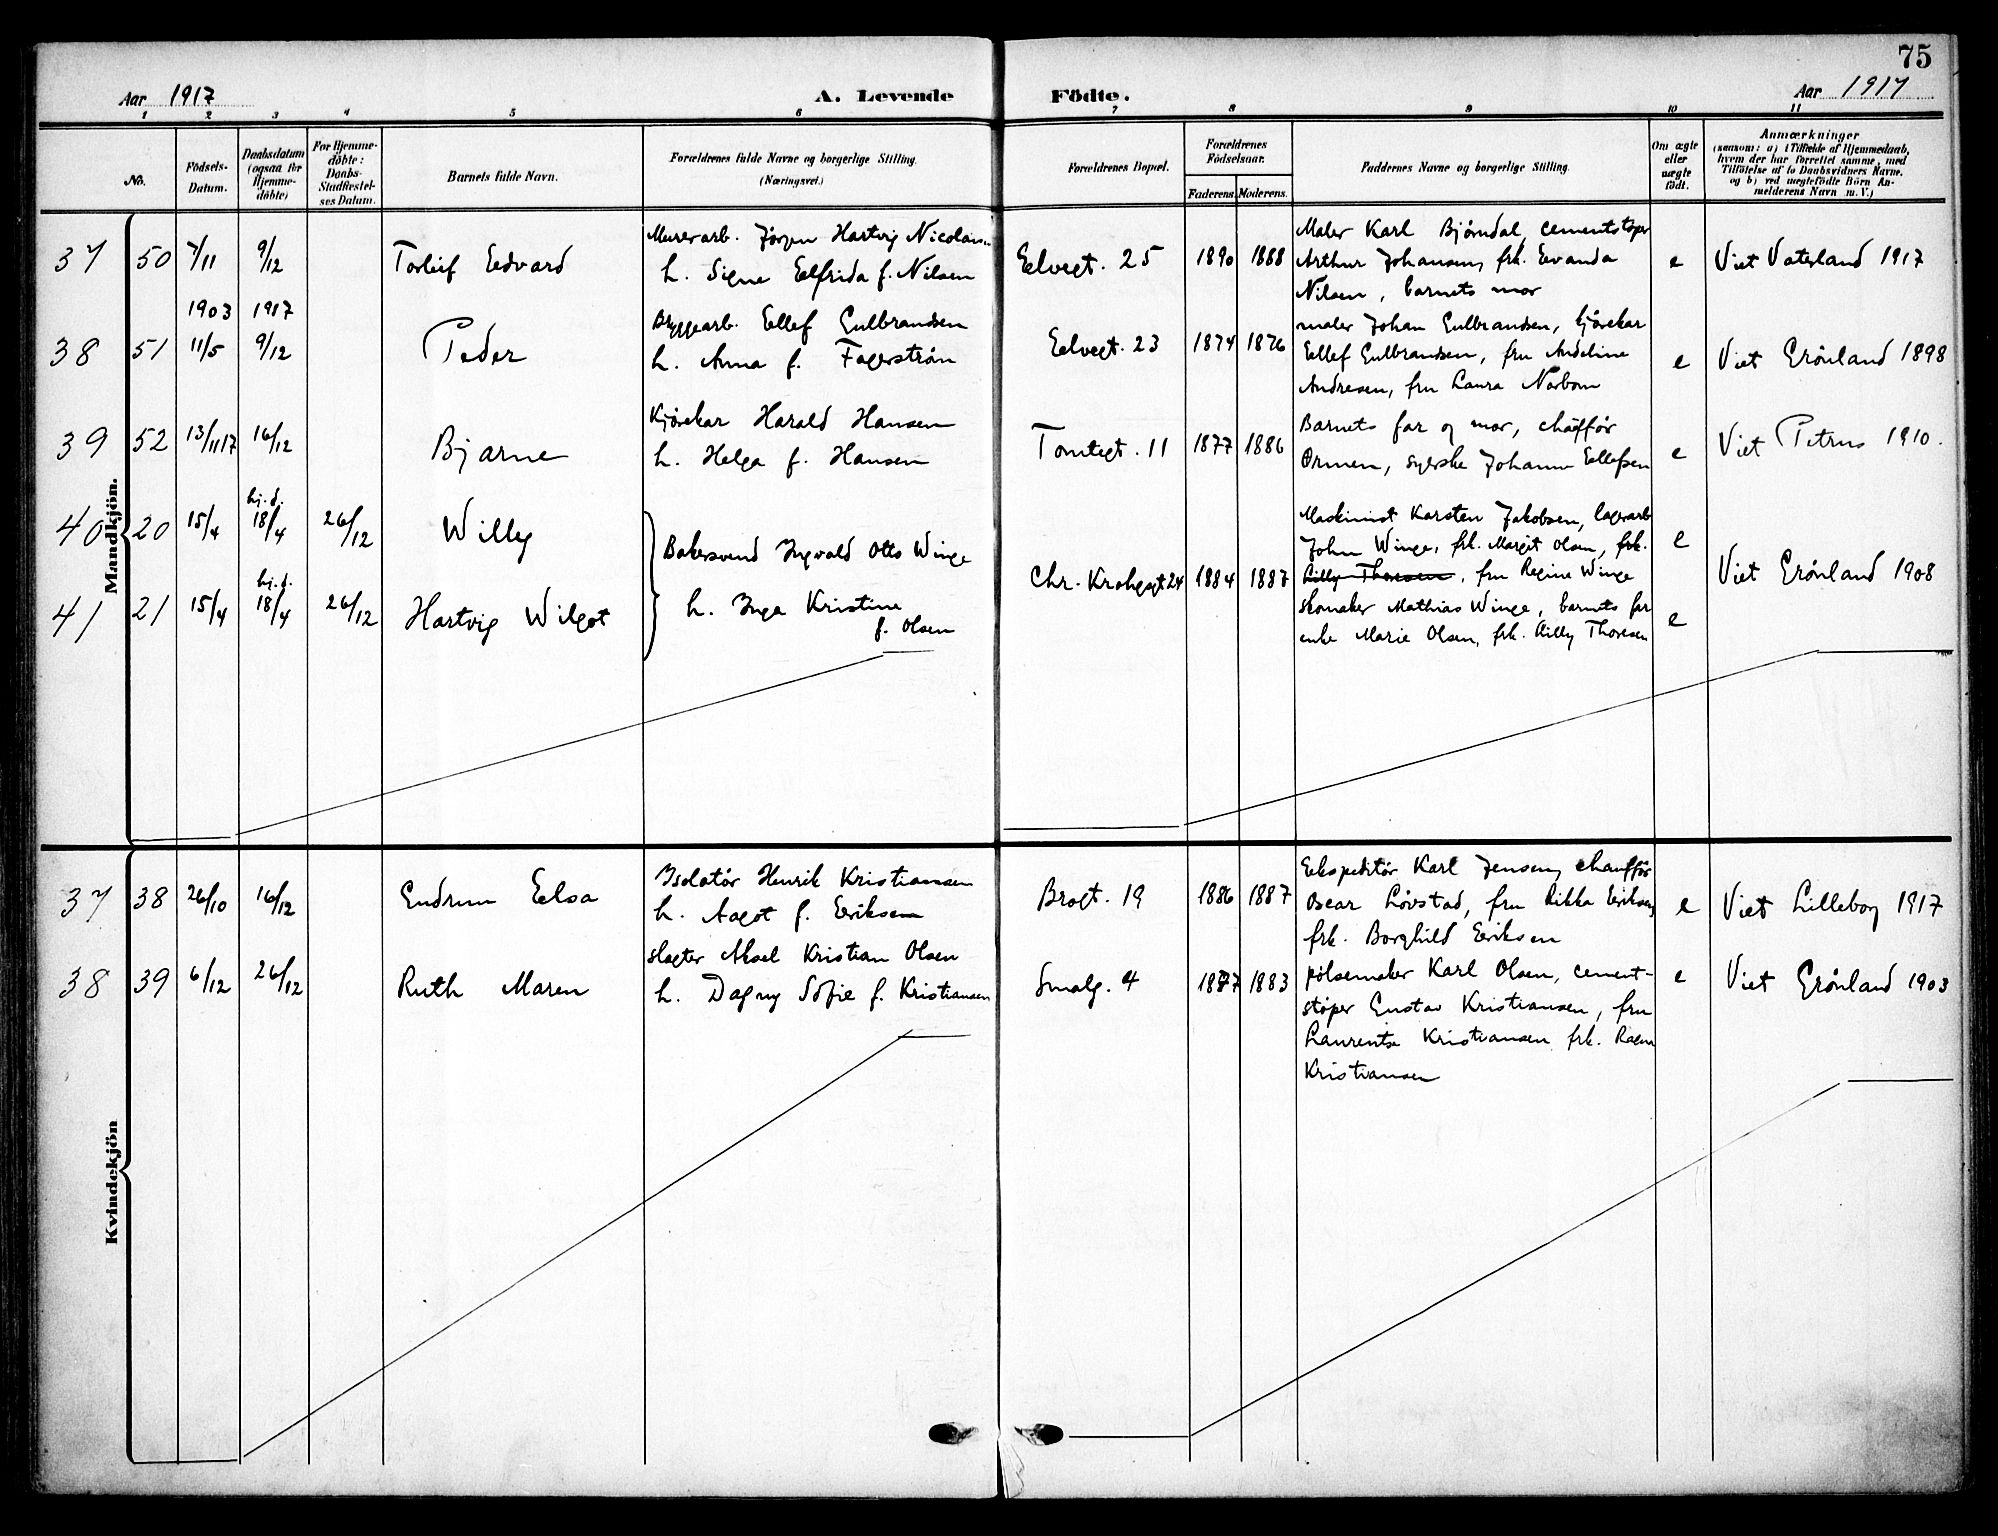 75
Aar 1917 A. Levende Födte. Aar 1917
1 2 3 4 5 6 7 8 9 10 11
No.
Födsels-
Datum.
Daabsdatum
(ogsaa for
Hjemme-
döbte)
For Hjemme-
döbte:
Daabs-
Stadfæstel-
ses Datum.
Barnets fulde Navn.
Forældrenes fulde Navne og borgerlige Stilling.
(Næringsvei.)
Forældrenes Bopæl.
Forældrenes
Födselsaar.
Faderens. Moderens.
Faddernes Navne og borgerlige Stilling.
Om ægte
eller
uægte
födt.
Anmærkninger
(saasom: a) i Tilfælde af Hjemmedaab,
hvem der har forrettet samme, med
Tilföielse af to Daabsvidners Navne.
og b) ved uægtefödte Börn An-
melderens Navn m. V.)
Mandkjön.
37 50 7/11 9/12 Torleif Edvard
Murerarb. Jörgen Hartvig Nicolaisen
h. Signe Elfrida f. Nilsen
Elvegt. 25 1890 1888
Maler Karl Bjørndal, cementstøper
Arthur Johansen, frk. Evanda
Nilsen, barnets mor
e Viet Vaterland 1917
1903 1917
38 51 11/5 9/12 Peder
Bryggearb. Ellef Gulbrandsen
h. Anna f. Fagerströn
Elvegt. 23 1874 1876
maler Johan Gulbrandsen, kjörekar
Ellef Gulbrandsen, fru Andeline
Andresen, fru Laura Norbom
e Viet Grönland 1898
39 52 13/11 17 16/12 Bjarne
Kjörekar Harald Hansen
h. Helga f. Hansen
Tomtegt. 11 1877 1886
Barnets far og mor, chaffför
Ormen, syerske Johanne Ellefsen
e Viet Petrus 1910.
hj. d.
40 20 15/4 18/4 26/12 Willy
hj. d.
41 21 15/4 18/4 26/12 Hartvig Wilgot
Bakersvend Ingvald Otto Winge
h. Inga Kristine
f. Olsen
Chr. Krohgsgt 24 1884 1887
Maskinist Karsten Jakobsen, lagerarb
John Winge, frk. Margit Olsen, frk.
Lilly Thoresen, fru Regine Winge
skomaker Mathias Winge, barnets far
enke Marie Olsen, frk. Lilly Thoresen
e
e
Viet Grönland 1908
Kvindekjön
37 38 26/10 16/12 Gudrun Elsa
Isolatör Henrik Kristiansen
h. Aagot f. Eriksen
Brogt. 19 1886 1887
Ekspeditör Karl Jensen, chaufför
Oscar Lövstad, fru Rikka Eriksen,
frk. Borghild Eriksen
e Viet Lilleborg 1917
38 39 6/12 26/12 Ruth Maren
slagter Aksel Kristian Olsen
h. Dagny Sofie f. Kristiansen
Smalg. 4 1877 1883
pölsemaker Karl Olsen, cement-
støper Gustav Kristiansen, fru
Laurentse Kristiansen frk. Ragna
Kristiansen
e Viet Grönland 1903